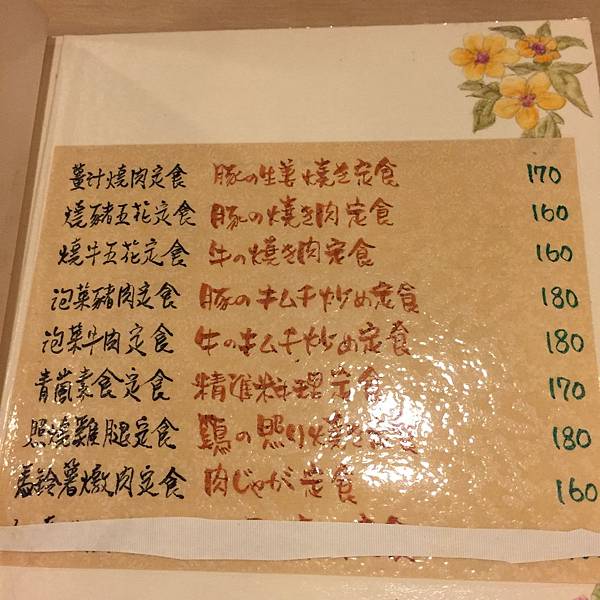 薑汁燒肉定食 豚の生姜焼き定食 170
燒豬五花定食 豚の焼き肉定食 160
燒牛五花定食 牛の焼き肉定食 160
泡菜豬肉定食 豚のキムチ炒め定食 180
泡菜牛肉定食 牛のキムチ炒め定食 180
青崗素食定食 精進料理定食 170
照燒雞腿定食 鶏の照り焼き定食 180
馬鈴薯燉肉定食 肉じゃが定食 160